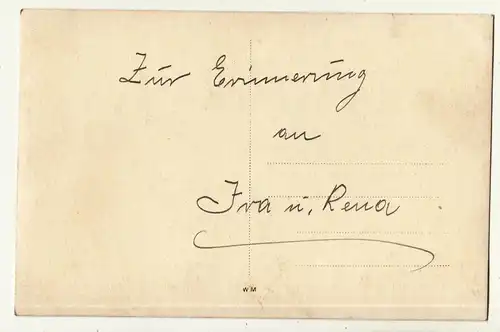 Zur Erinnerung
an
Ira u. Rena
W M